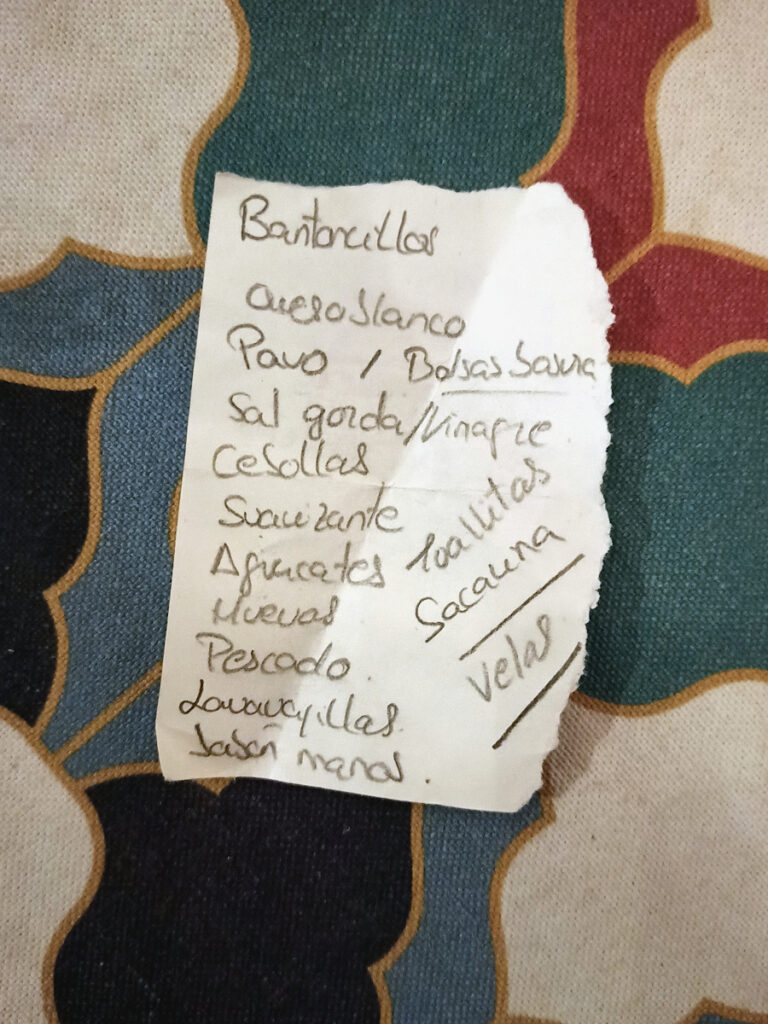 Bantoncillos
Queso blanco
Pavo / Bolsas basura
Sal gorda/Vinagre
Cebollas
Suavizante
Aguacates
Huevos
Pescado.
Lavavajillas
Jabón manos.
Toallitas
Sacarina
Velas